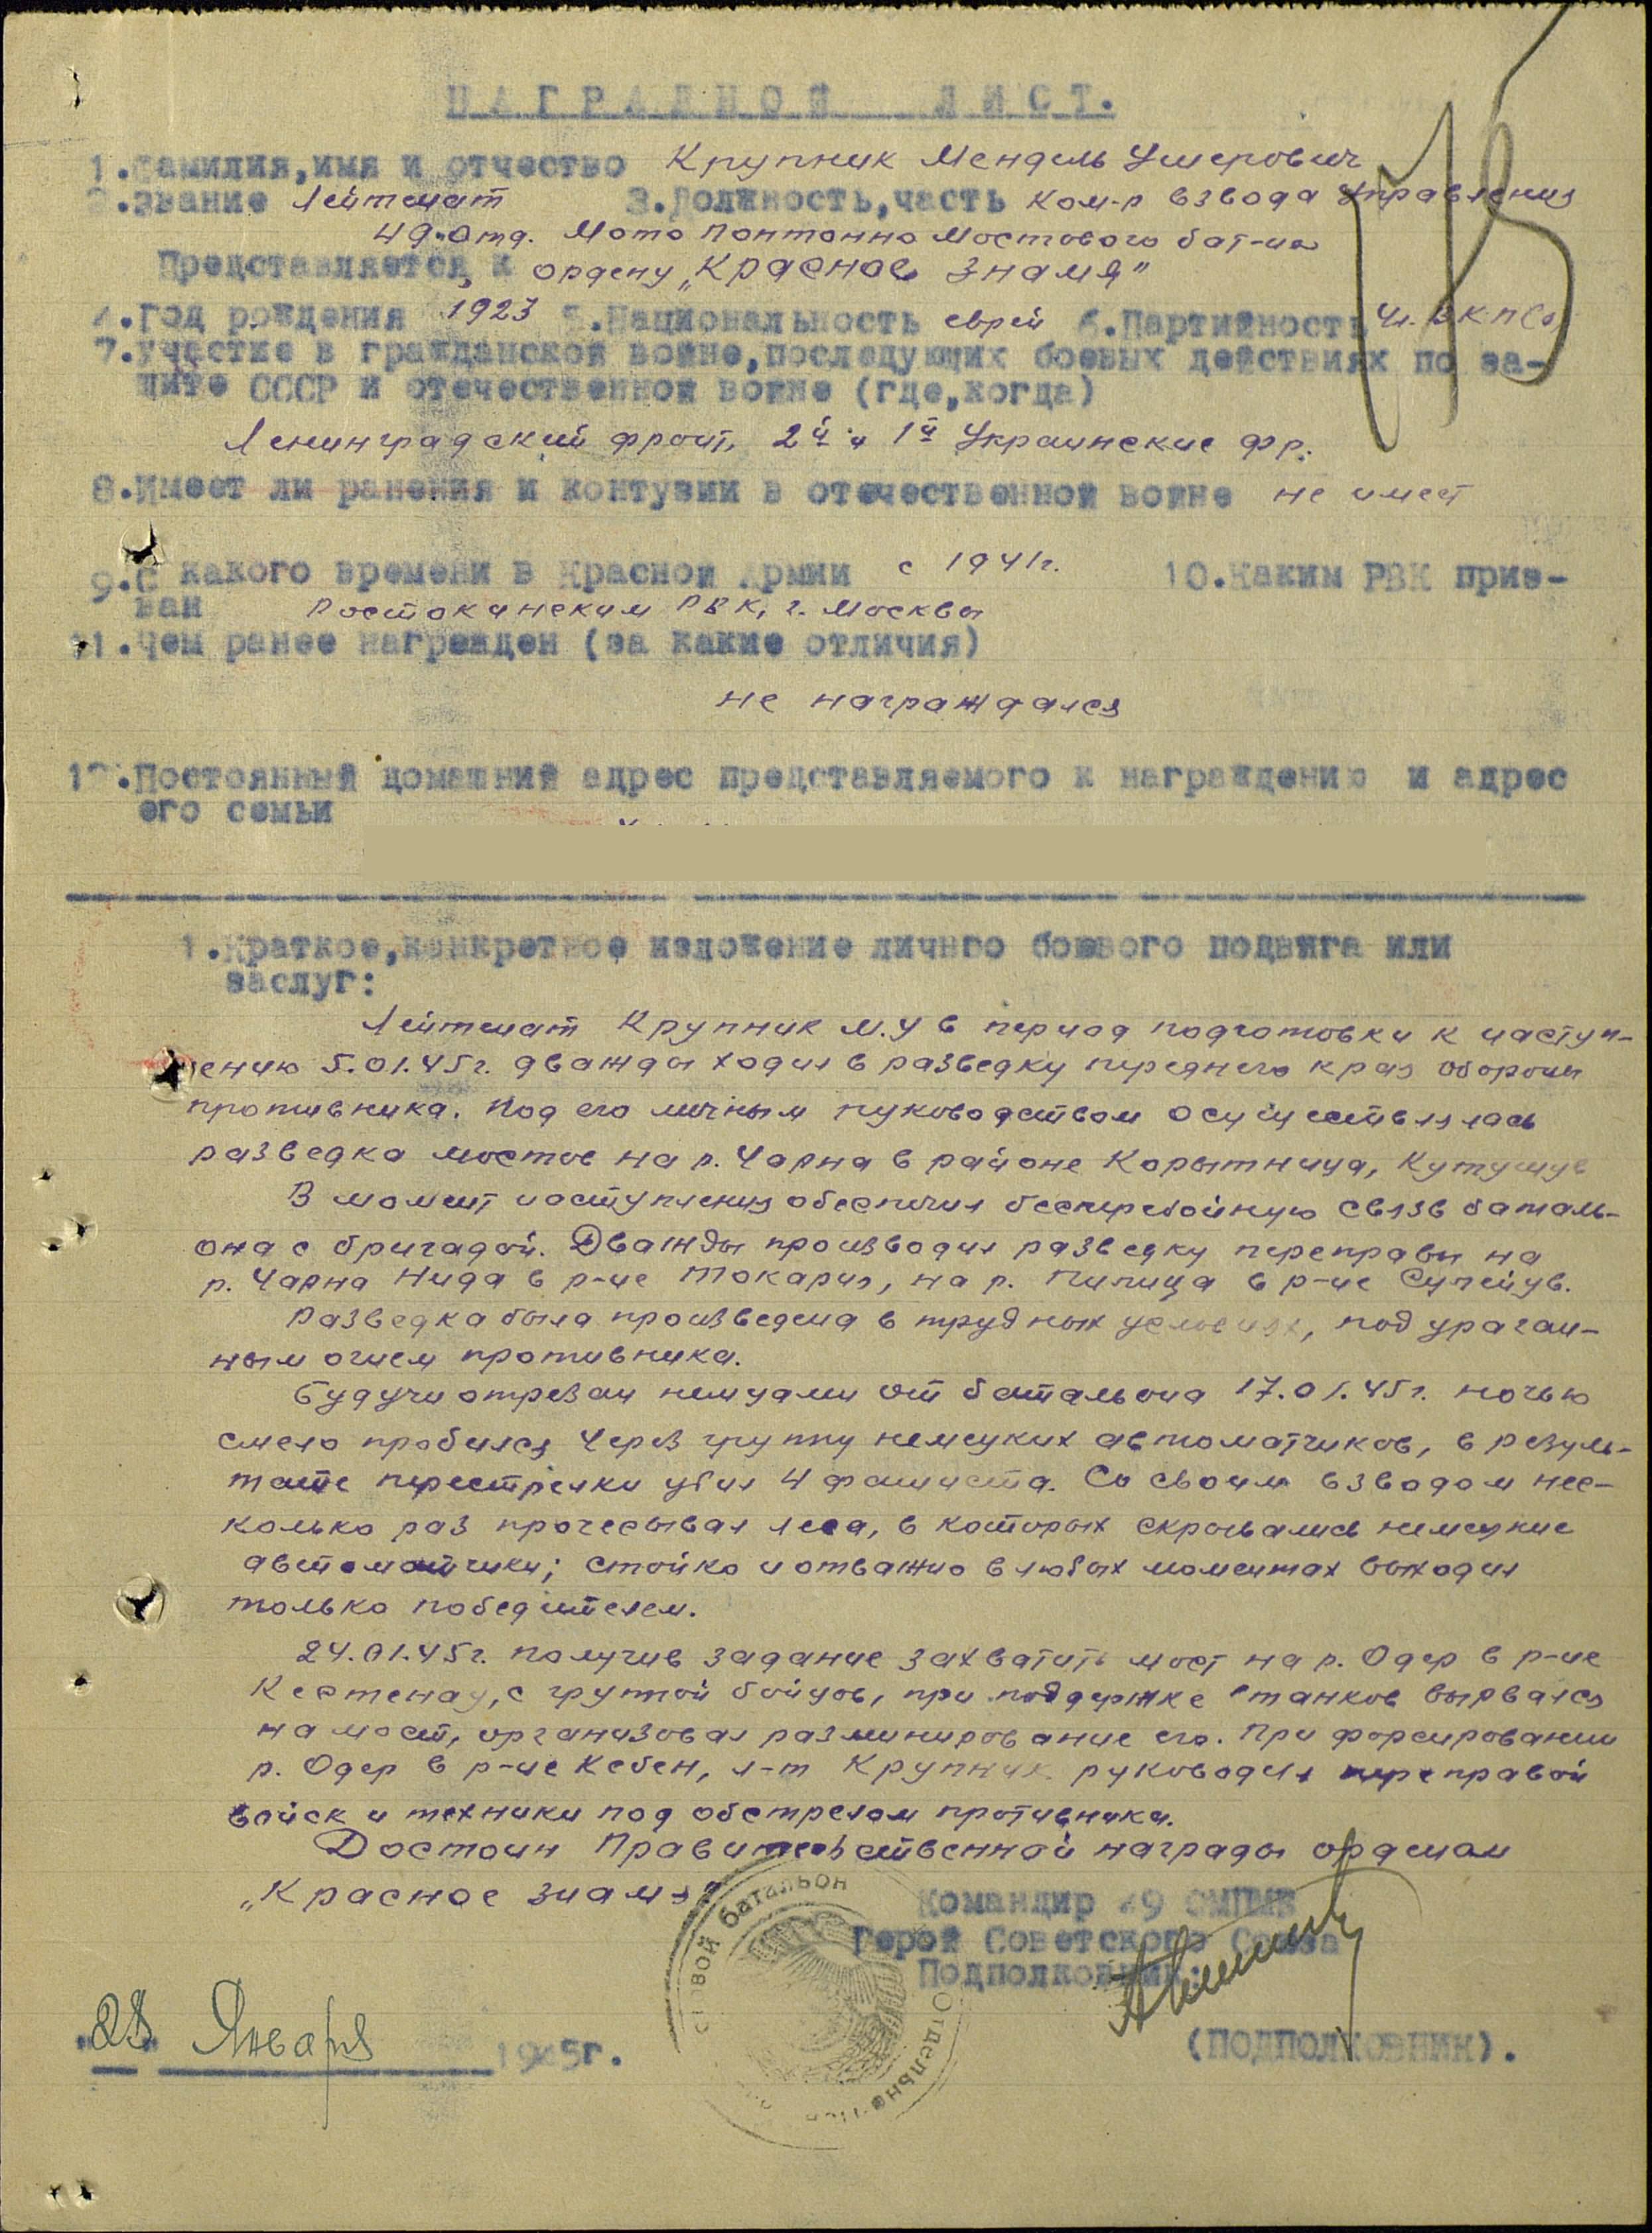 НАГРАДНОЙ ЛИСТ.
1.Фамилия,имя и отчество Крупник Мендель Ушерович
2.Звание Лейтенант 3.Должность,часть Ком-р взвода Управления
49 Отд. Мото Понтонно Мостового бат-на
Представляется к ордену „Красное Знамя"
4.Год рождения 1923 5.Национальность еврей 6.Партийность Чл. ВКП(б)
7.Участие в гражданской войне,последующих боевых действиях по за-
щите СССР и отечественной войне (где,когда)
Ленинградский фронт, 2й и 1й Украинские фр.
8.Имеет ли ранения и контузии в отечественной войне не имеет
9.С какого времени в Красной Армии с 1941г. 10.Каким РВК приз-
ван Ростокинским РВК, г. Москвы
11.Чем ранее награжден (за какие отличия)
не награждался
12.Постоянный домашний адрес представляемого к награждению и адрес
его семьи
1.Краткое,конкретное изложение личнго боевого подвига или
заслуг:
Лейтенант Крупник М.У в период подготовки к наступ-
лению 5.01.45г. дважды ходил в разведку переднего края обороны
противника. Под его личным руководством осуществлялась
разведка мостов на р. Чарна в районе Корытница, Кутушув
В момент наступления обеспечил бесперебойную связь баталь-
она с бригадой. Дважды производил разведку переправы на
р. Чарна Нида в р-не Токария, на р. Пилица в р-не Сулейув.
Разведка была произведена в трудных условиях, под ураган-
ным огнем противника.
Будучи отрезан немцами от батальона 17.01.45г. ночью
смело пробился через группу немецких автоматчиков, в резуль-
тате перестрелки убил 4 фашиста. Со своим взводом нес-
колько раз прочесывал леса, в которых скрывались немецкие
автоматчики; стойко и отважно в любых моментах выходил
только победителем.
24.01.45г. получив задание захватить мост на р. Одер в р-не
Кестенау, с группой бойцов, при поддержке танков вырвался
на мост, организовал разминирование его. При форсировании
р. Одер в р-не Кебен, л-т Крупник руководил переправой
войск и техники под обстрелом противника.
Достоин Правительственной награды орденом
„Красное знамя"
Командир 49 ОМПМБ
Герой Советского Союза
Подполковник:
(ПОДПОЛКОВНИК).
„28" Января 1945г.
стовой батальон
Отдельн